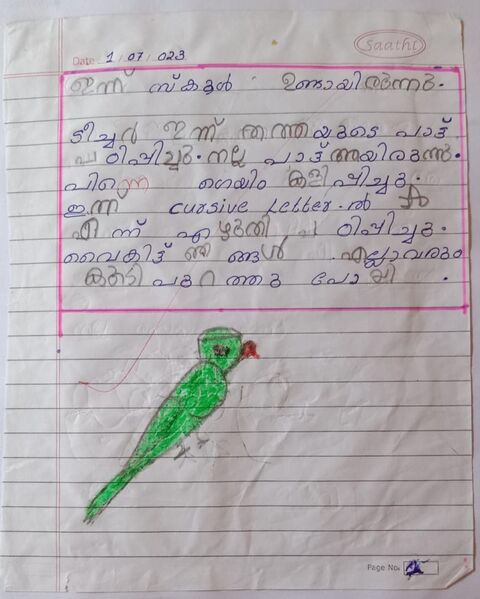 Saathi
Date : 1/07/023
ഇന്ന് സ്കൂൾ ഉണ്ടായിരുന്നു.
ടീച്ചർ ഇന്ന് തത്തയുടെ പാട്ട്
പഠിപ്പിച്ചു. നല്ല പാട്ട് ആയിരുന്നു.
പിന്നെ ഗെയിം കളിപ്പിച്ചു.
ഇന്ന് cursive Letter-ൽ
എന്ന് എഴുതി പഠിപ്പിച്ചു.
വൈകിട്ട് ഞങ്ങൾ എല്ലാവരും
കൂടി പുറത്തു പോയി.
Page No: